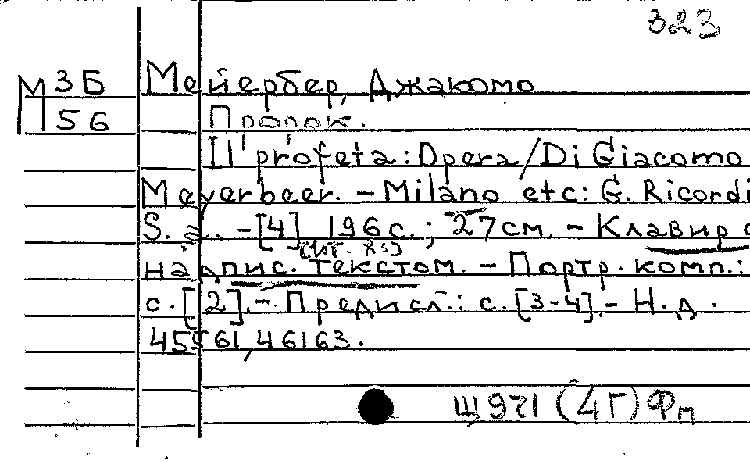 323
М3Б Мейербер, Джакомо
56 Пророк.
Il profeta: Opera/Di Giacomo
Meyerbeer. - Milano etc: G. Ricordi
S. a. - [4], 196 с.; 27 см. - Клавир с
(ит. яз)
надпис. текстом. - Портр. комп.:
с. [2]. - Предисл.: с. [3-4]. - Н.д.
45561, 46163.
Щ971 (4Г) Фп